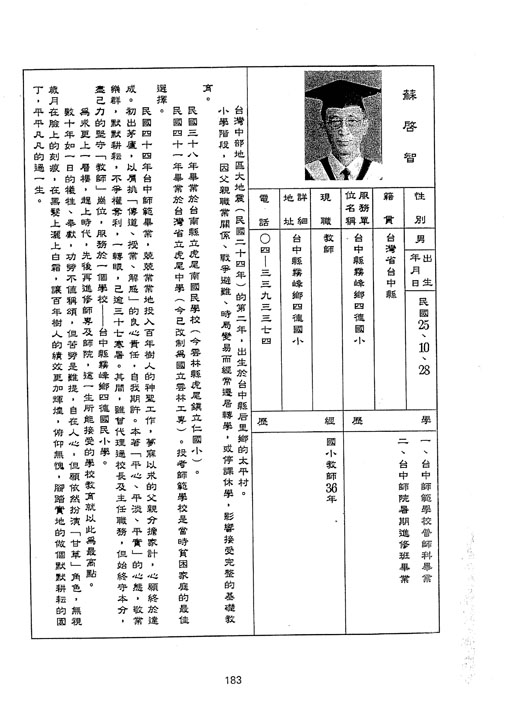 蘇啓智
性別 男 出生年月日 民國25、10、28
籍貫 台灣省台中縣
服務單位名稱 台中縣霧峰鄉四德國小
現職 教師
詳細地址 台中縣霧峰鄉四德國小
電話 〇四—三三九三三七四
學歷
一、台中師範學校普師科畢業
二、台中師院暑期進修班畢業
經歷
國小教師36年
台灣中部地區大地震（民國二十四年）的第二年，出生於台中縣后里鄉的太平村。
小學階段，因父親職業關係、戰爭避難、時局變易而經常遷居轉學，或停課休學，影響接受完整的基礎教
育。
民國三十八年畢業於台南縣立虎尾南國民學校（今雲林縣虎尾鎮立仁國小）。
民國四十一年畢業於台灣省立虎尾中學（今已改制為國立雲林工專）。投考師範學校是當時貧困家庭的最佳
選擇。
民國四十四年台中師範畢業，兢兢業業地投入百年樹人的神聖工作，夢寐以求的父親分擔家計，心願終於達
成。初出茅廬，以肩挑「傳道、授業、解惑」的良心責任，自我期許。本著「平心、平淡、平實」的心態，敬業
樂群，默默耕耘，不爭權奪利，一轉眼，已逾三十七寒暑。其間，雖曾代理過校長及主任職務，但始終守本分，
盡己力的堅守「教師」崗位，服務於一個學校——台中縣霧峰鄉四德國民小學。
為求更上一層樓，趕上時代，先後再進修師專及師院，這一生所能接受的學校教育就以此為最高點。
數十年如一日的犧牲、奉獻，功勞不值稱頌，但苦勞是難捱，自在人心，但願依然扮演「甘草」角色，無視
歲月在臉上的刻痕，在黑髮上灑上白霜，讓百年樹人的績效更加輝煌，俯仰無愧，腳踏實地的做個默默耕耘的園
丁，平平凡凡的過一生。
183